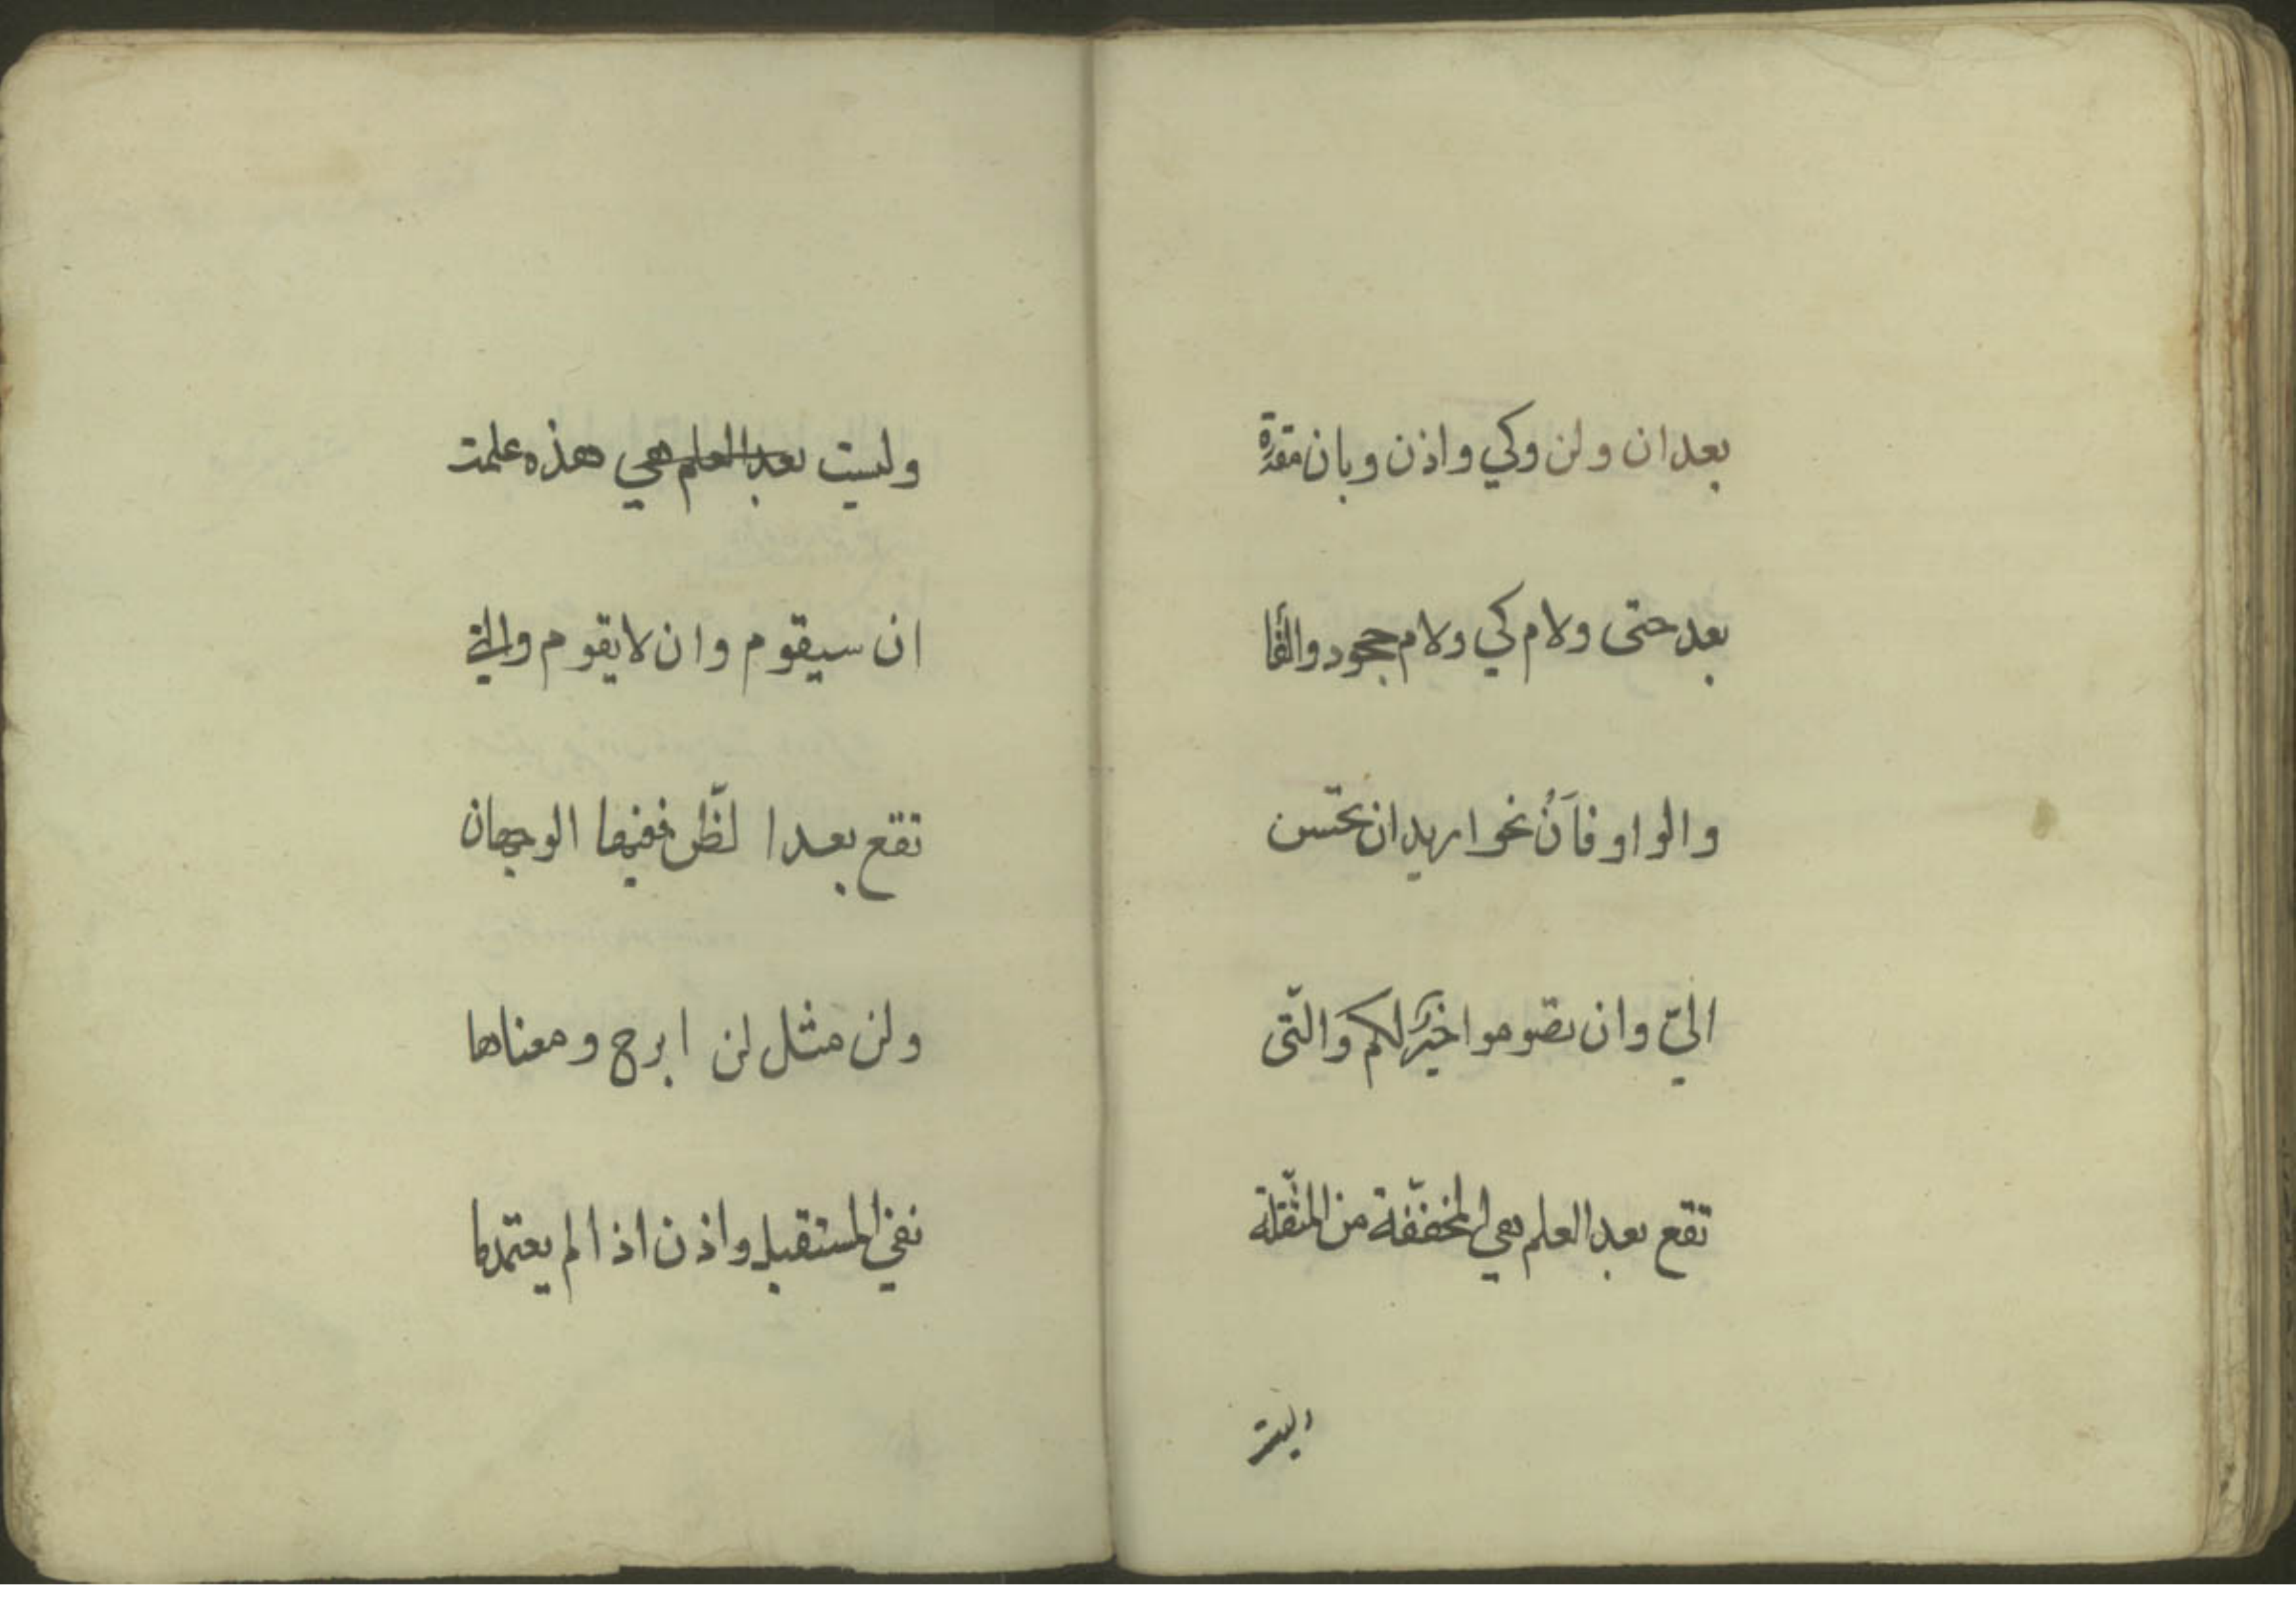 بعد ان ولن وكي واذن وبان مقدرة
بعد حتى ولام كي ولام جحود والفا
والواو فاَنْ نحو اريد ان تحسن
اليّ وان تصوموا خيرٌ لكم وَالتّى
تقع بعد العلم هي المخففّة من المثّقلة
وليست
وليست بعد العلم هي هذه علمت
ان سيقوم وان لا يقوم والتي
تقع بعد ا لظّن ففيها الوجهان
ولن مثل لن ابرح ومعناها
نفي المستقبل واذن اذا لم يعتمد ما